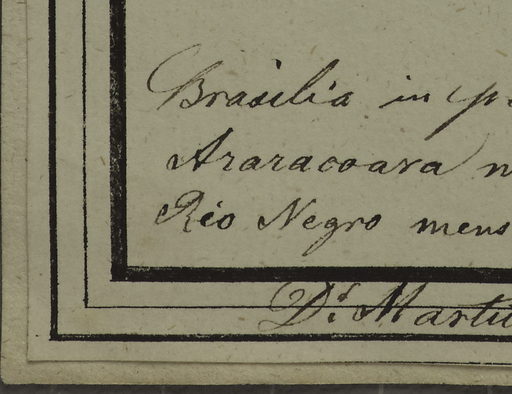 Brasilia in
Araracoara
Rio Negro mens
Dr. Martiu